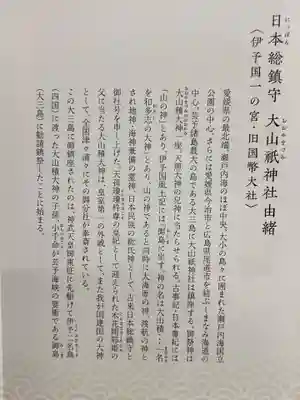 日本総鎮守 大山祇神社由緒
(伊予国一の宮・旧国幣大社)
愛媛県の最北端、瀬戸内海のほぼ中央、大小の島々に囲まれた瀬戸内海国立
公園の中心、さらには愛媛県今治市と広島県尾道市を結ぶしまなみ海道の
中心、芸予諸島最大の島である大三島に大山祇神社は鎮座する。御祭神は
大山積大神一座、天照大神の兄神に当たらせられる。古事記・日本書紀には
「山の神」とあり、伊予国風土記には「御島に坐す。神の名は大山積…一名
を和多志の大神」とあり、山の神であると同時に大海原の神、渡航の神と
され地神・海神兼備の霊神、日本民族の総氏神として、古来日本総鎮守と
御社号を申し上げた。天孫瓊々杵尊の皇妃として迎えられた木花開耶姫の
父に当たる大山積大神は皇室第一の外戚として、また我が国建国の大神
として、全国津々浦々にその御分社が奉斎されている。
この大三島に御鎮座されたのは、神武天皇御東征に先駆けて伊予二名島
(四国)に渡った大山積大神の子孫・小千命が芸予海峡の要衝である御島
(大三島)に勧請鎮祭したことに始まる。